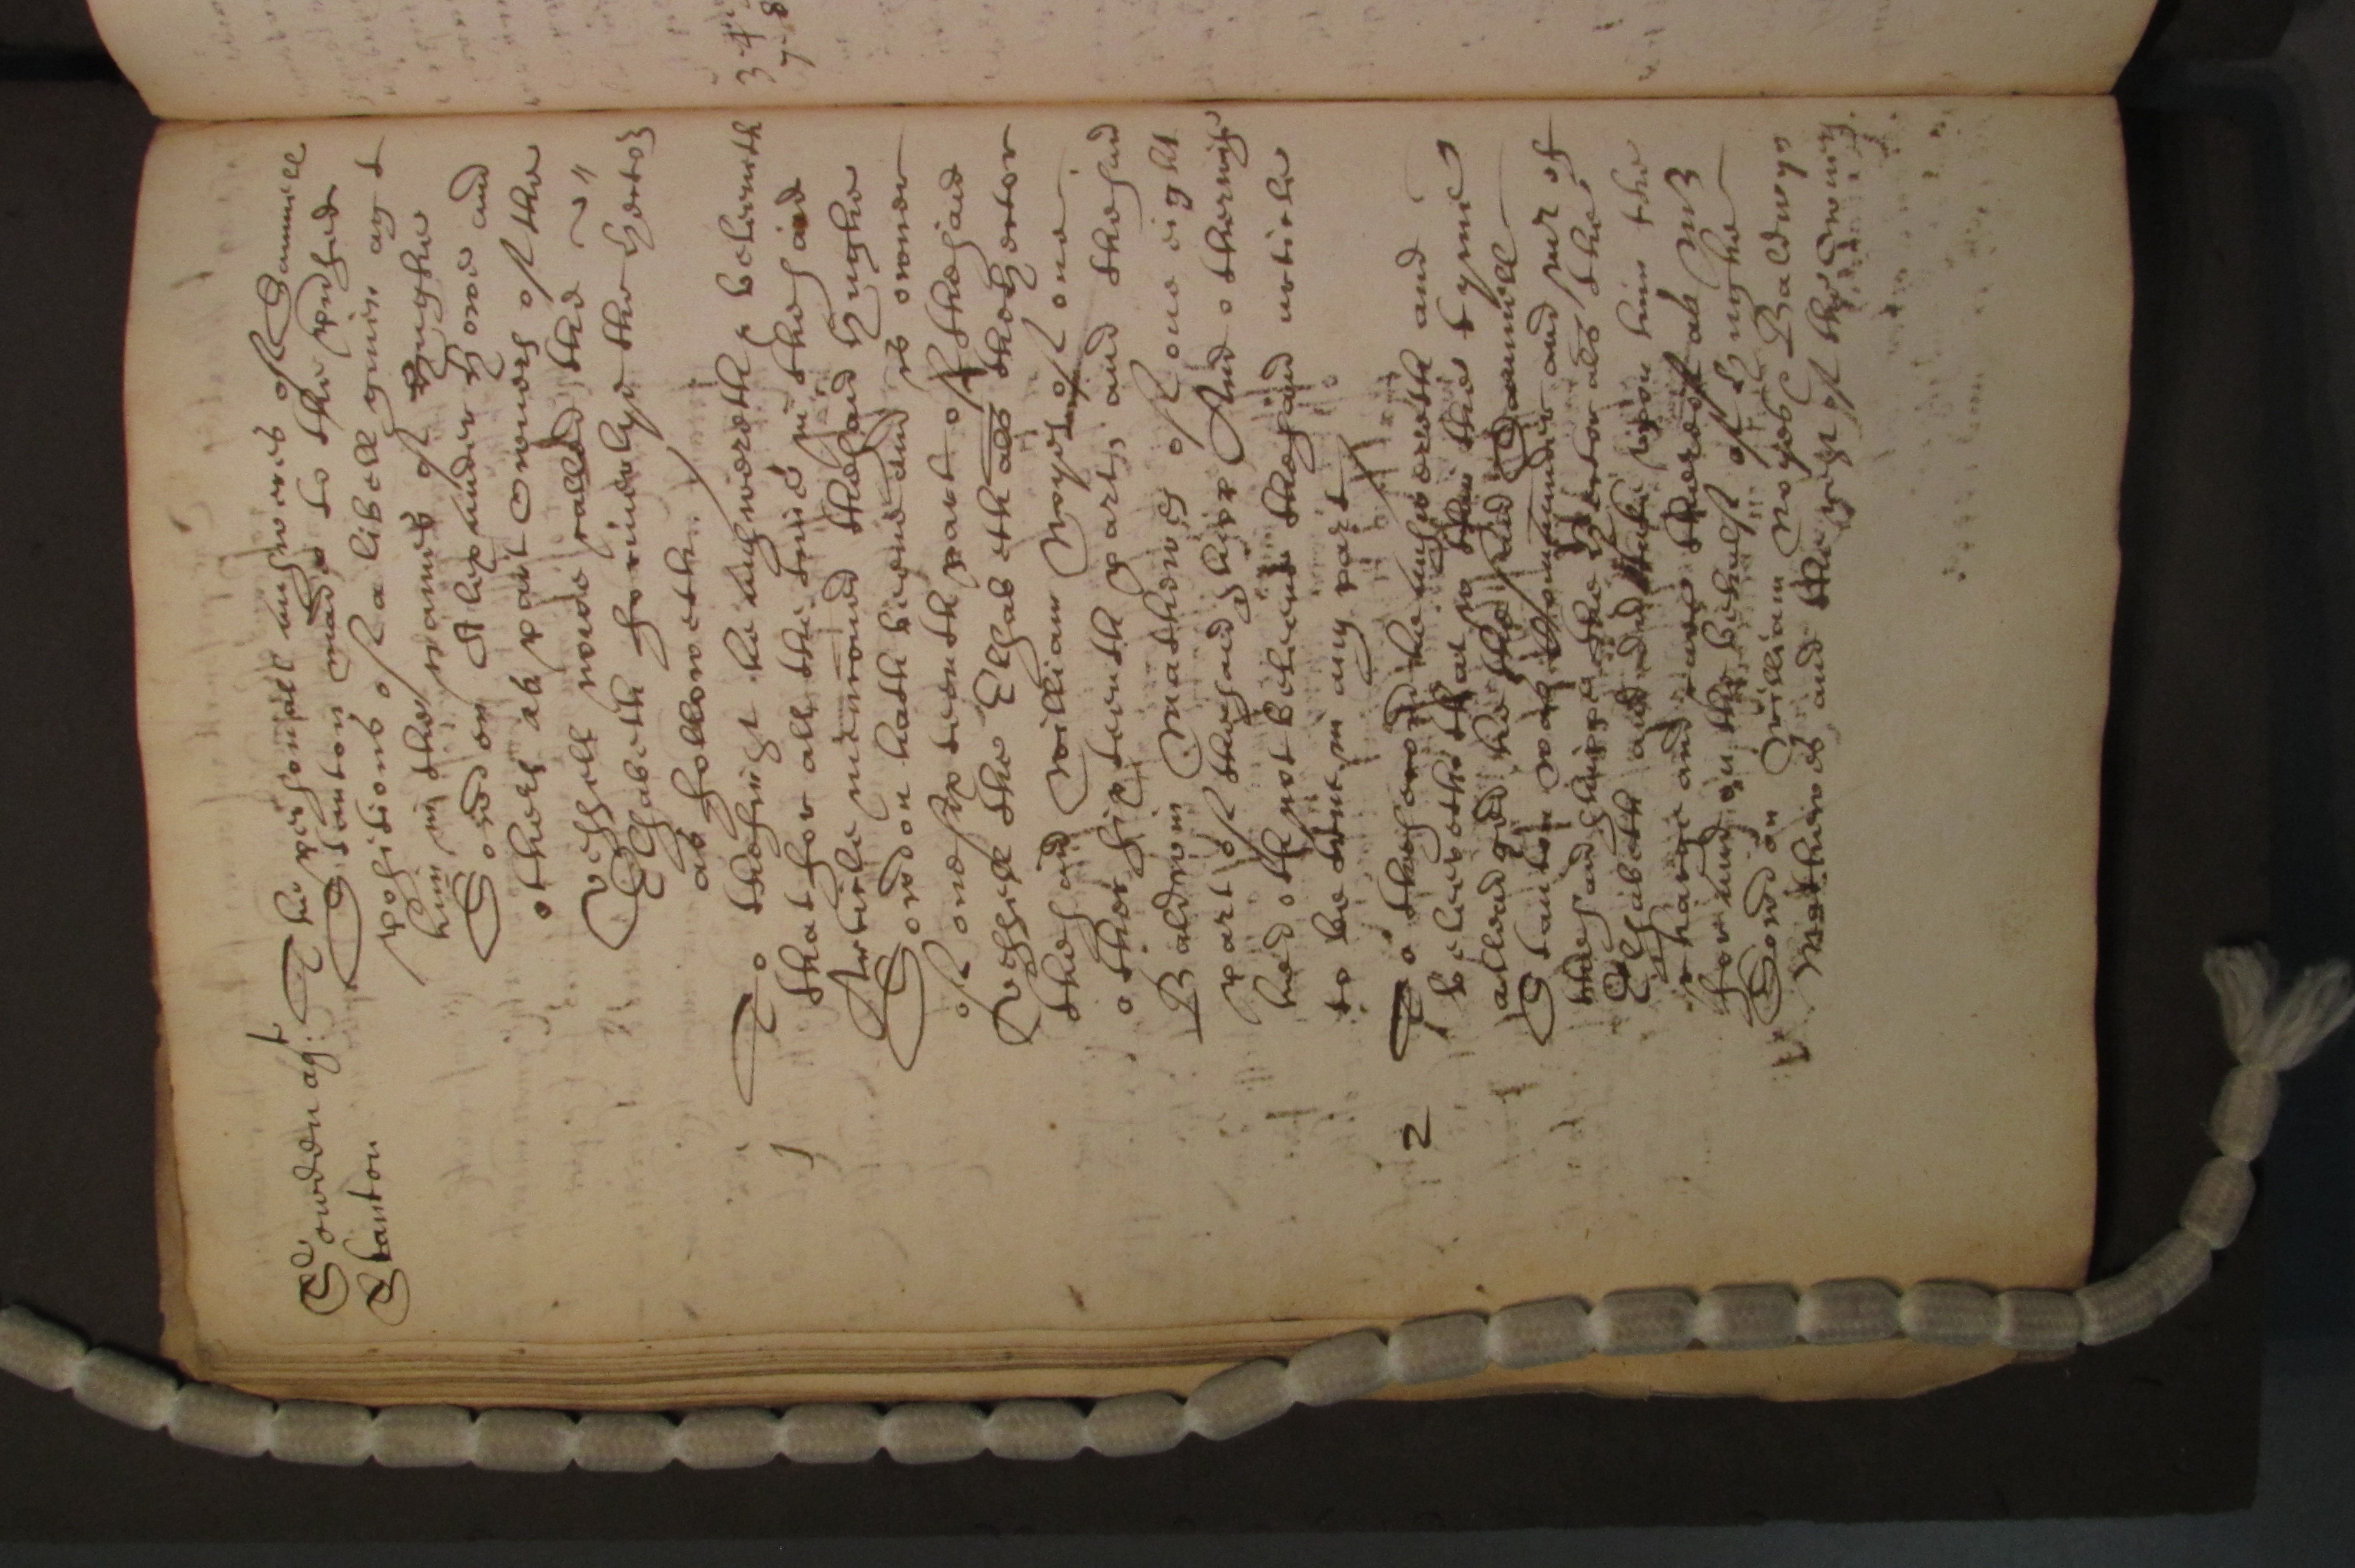 Sowdon agt
Stanton
The personall answeres of Samuell
Stanton made to the prtnsed
positions of a libell given agt
him in the names of Hughe
Sowdon Alexander Howe and
others as part Owners of the
vessell were called the
Elizabeth formerlye the Hector
as followeth.
1
To the first he answereth & beleeveth
that for all the time in the said
Article mencioned the said Hughe
Sowdon hath beene and is owner
of one sixteenth part of the said
vessell the Elizabeth als the Hector
the said William Noyes of one
other sixteenth part, and the said
Baldwin Mathewes of one eight
part of the said shipp And otherwise
he doth not beleeve the said article
to be true in any part
2
To the second he answereth and
beleeveth that in the time
alleadged he the said Samuell
Stanton was Commander and mr of
the said shippe the Hector als the
Elizabeth and did take upon him the
charge and care thereof as Mr
for and on the behalf of Hughe
Sowdon William Noyes Baldwyn
Mathewes and the rest of the Owners.
3-4
7-8